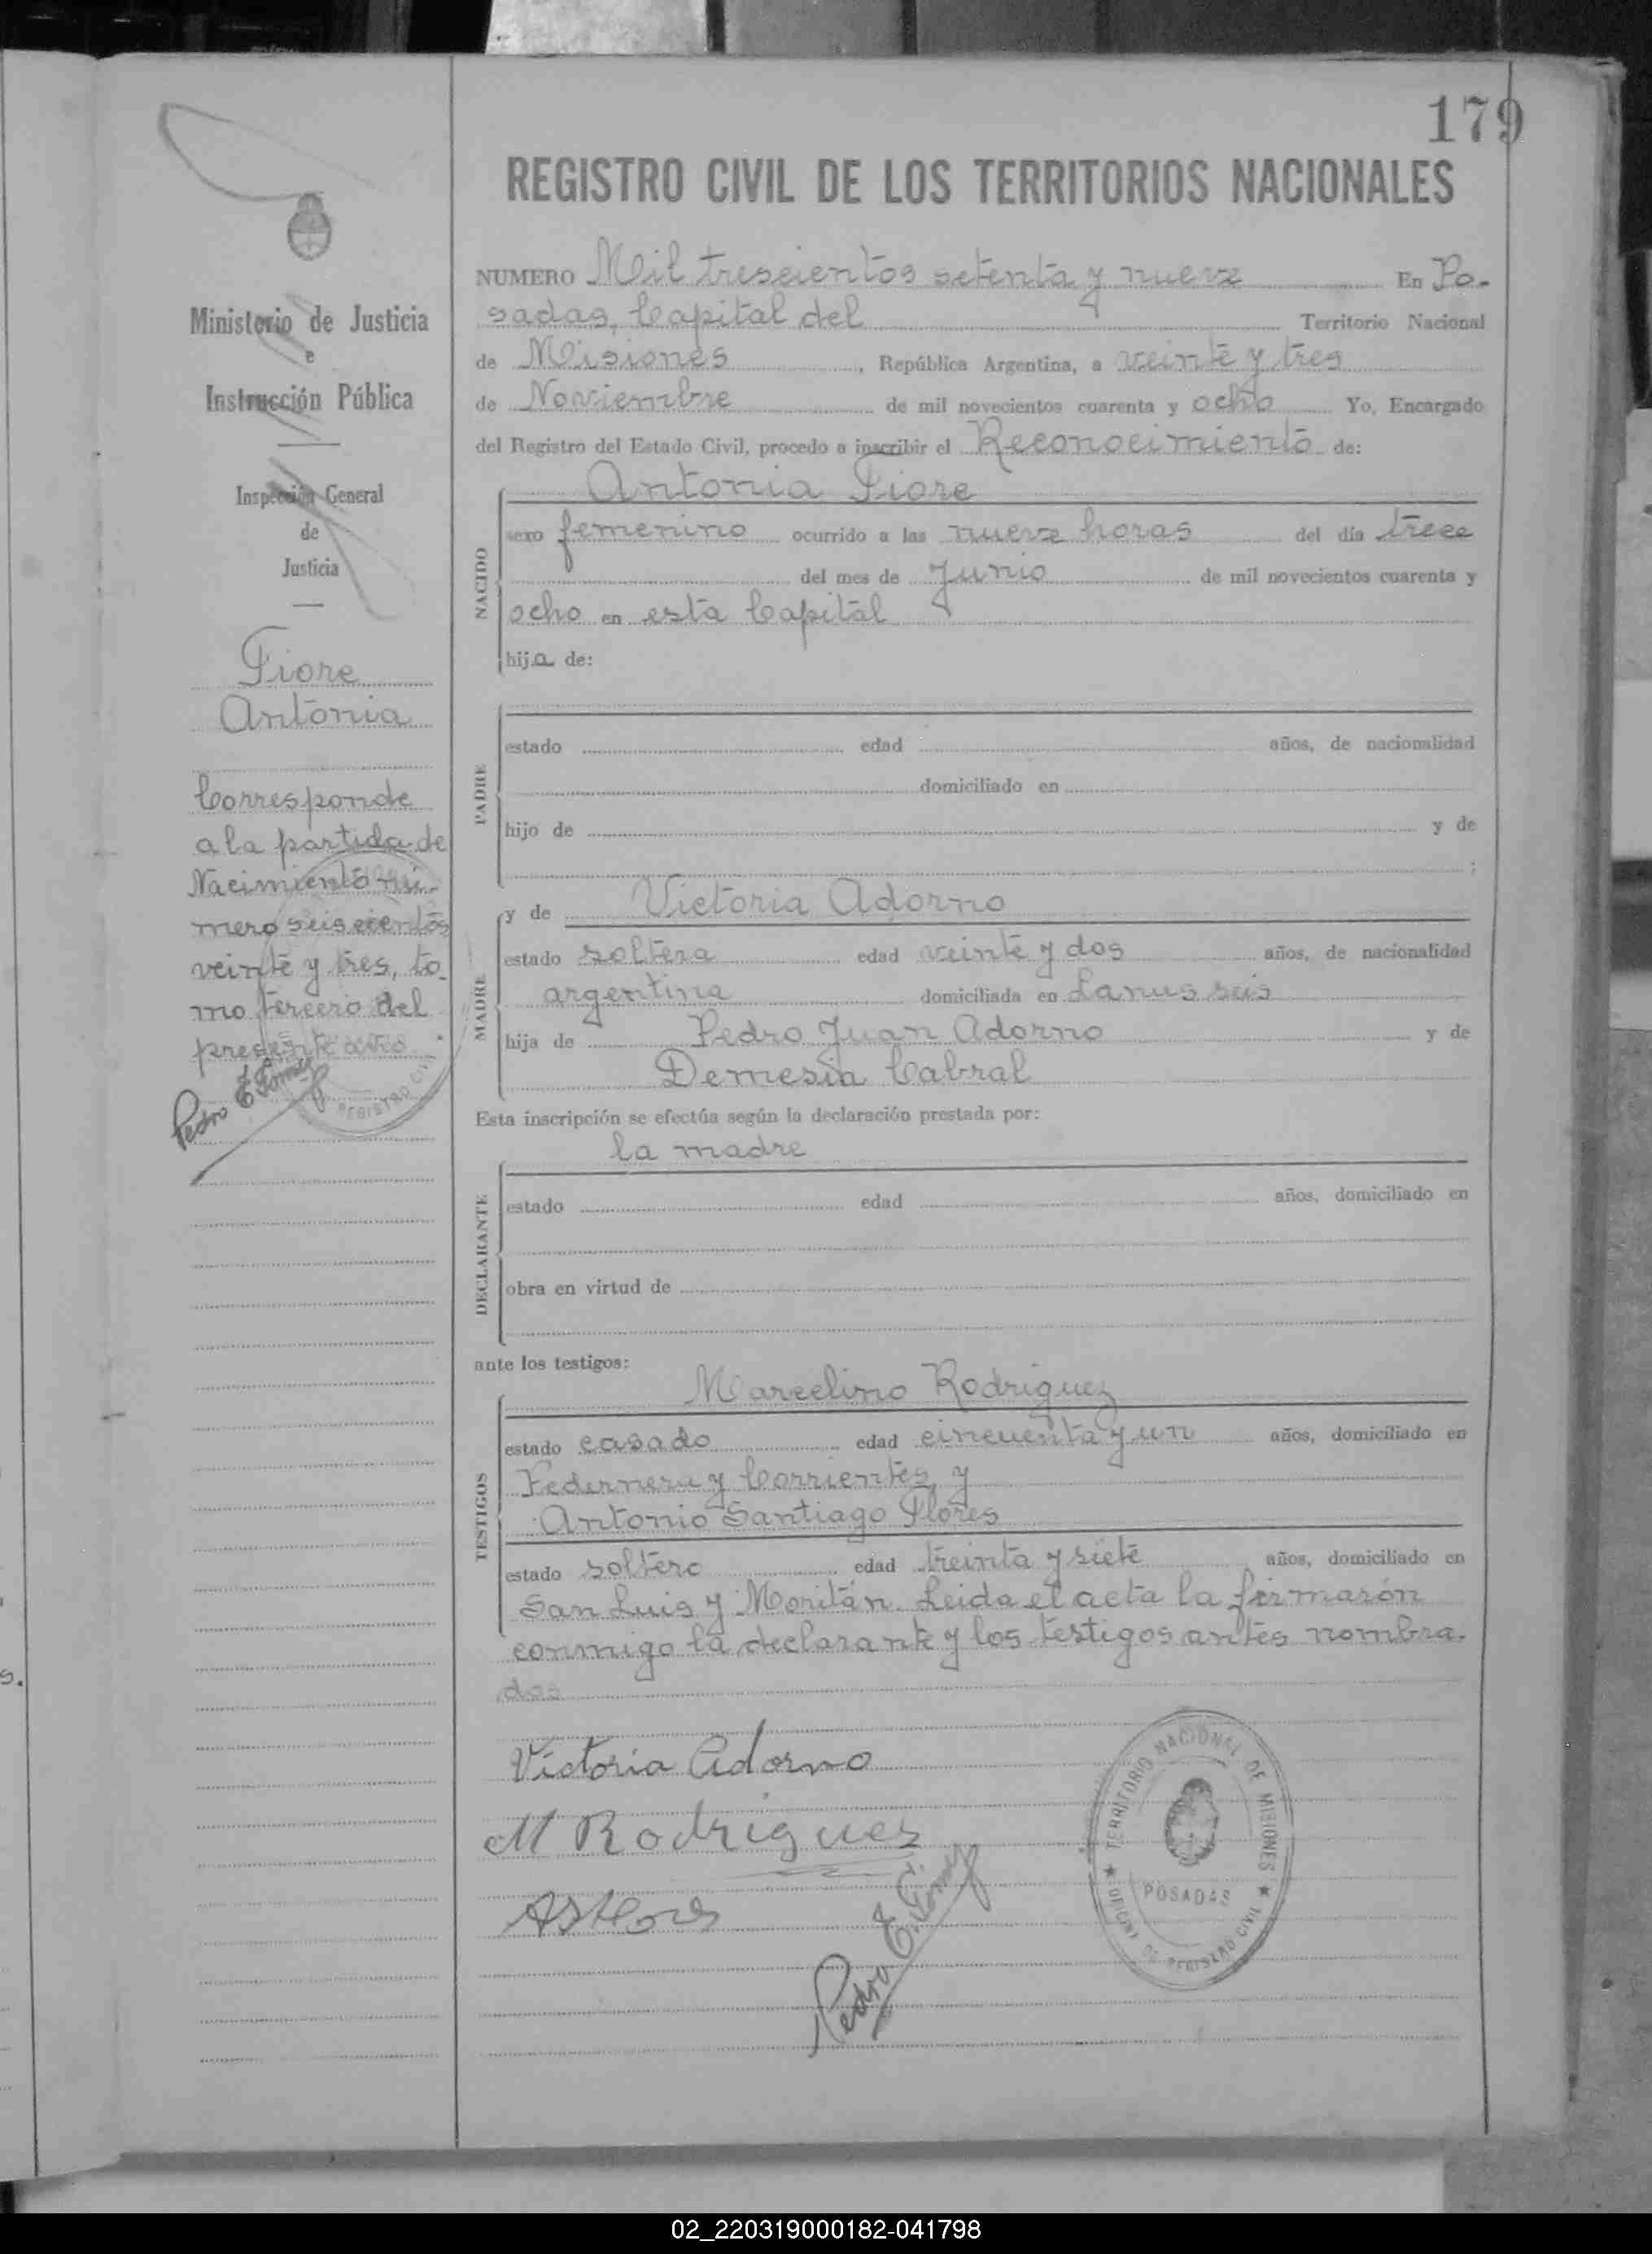 179
REGISTRO CIVIL DE LOS TERRITORIOS NACIONALES
NUMERO Mil trescientos setenta y nueve En Po-
sadas, Capital del Territorio Nacional
de Misiones, República Argentina, a veinte y tres
de Noviembre de mil novecientos cuarenta y ocho Yo, Encargado
del Registro del Estado Civil, procedo a inscribir el Reconocimiento de:
NACIDO
Antonia Fiore
sexo femenino ocurrido a las nueve horas del día trece
del mes de Junio de mil novecientos cuarenta y
ocho en esta Capital
hija de:
PADRE
estado edad años, de nacionalidad
domiciliado en
hijo de y de
;
MADRE
y de Victoria Adorno
estado soltera edad veinte y dos años, de nacionalidad
argentina domiciliada en Lanus seis
hija de Pedro Juan Adorno y de
Demesia Cabral
Esta inscripción se efectúa según la declaración prestada por:
la madre
DECLARANTE
estado edad años, domiciliado en
obra en virtud de
ante los testigos:
TESTIGOS
Marcelino Rodriguez
estado casado edad cincuenta y un años, domiciliado en
Pedernera y Corrientes, y
Antonio Santiago Flores
estado soltero edad treinta y siete años, domiciliado en
San Luis y Moritán. Leida el acta la firmarón
conmigo la declarante y los testigos antes nombra-
dos
Victoria Adorno
M Rodrigues
AS Flores
Pedro E. Gomez
TERRITORIO NACIONAL DE MISIONES
POSADAS
OFICINA DE REGISTRO CIVIL
Ministerio de Justicia
e
Instrucción Pública
Inspección General
de
Justicia
Fiore
Antonia
Corresponde
a la partida de
Nacimiento nú-
mero seiscientos
veinte y tres, to-
mo tercero del
presente año
Pedro E Gomez
REGISTRO CIVIL
s.
02_220319000182-041798